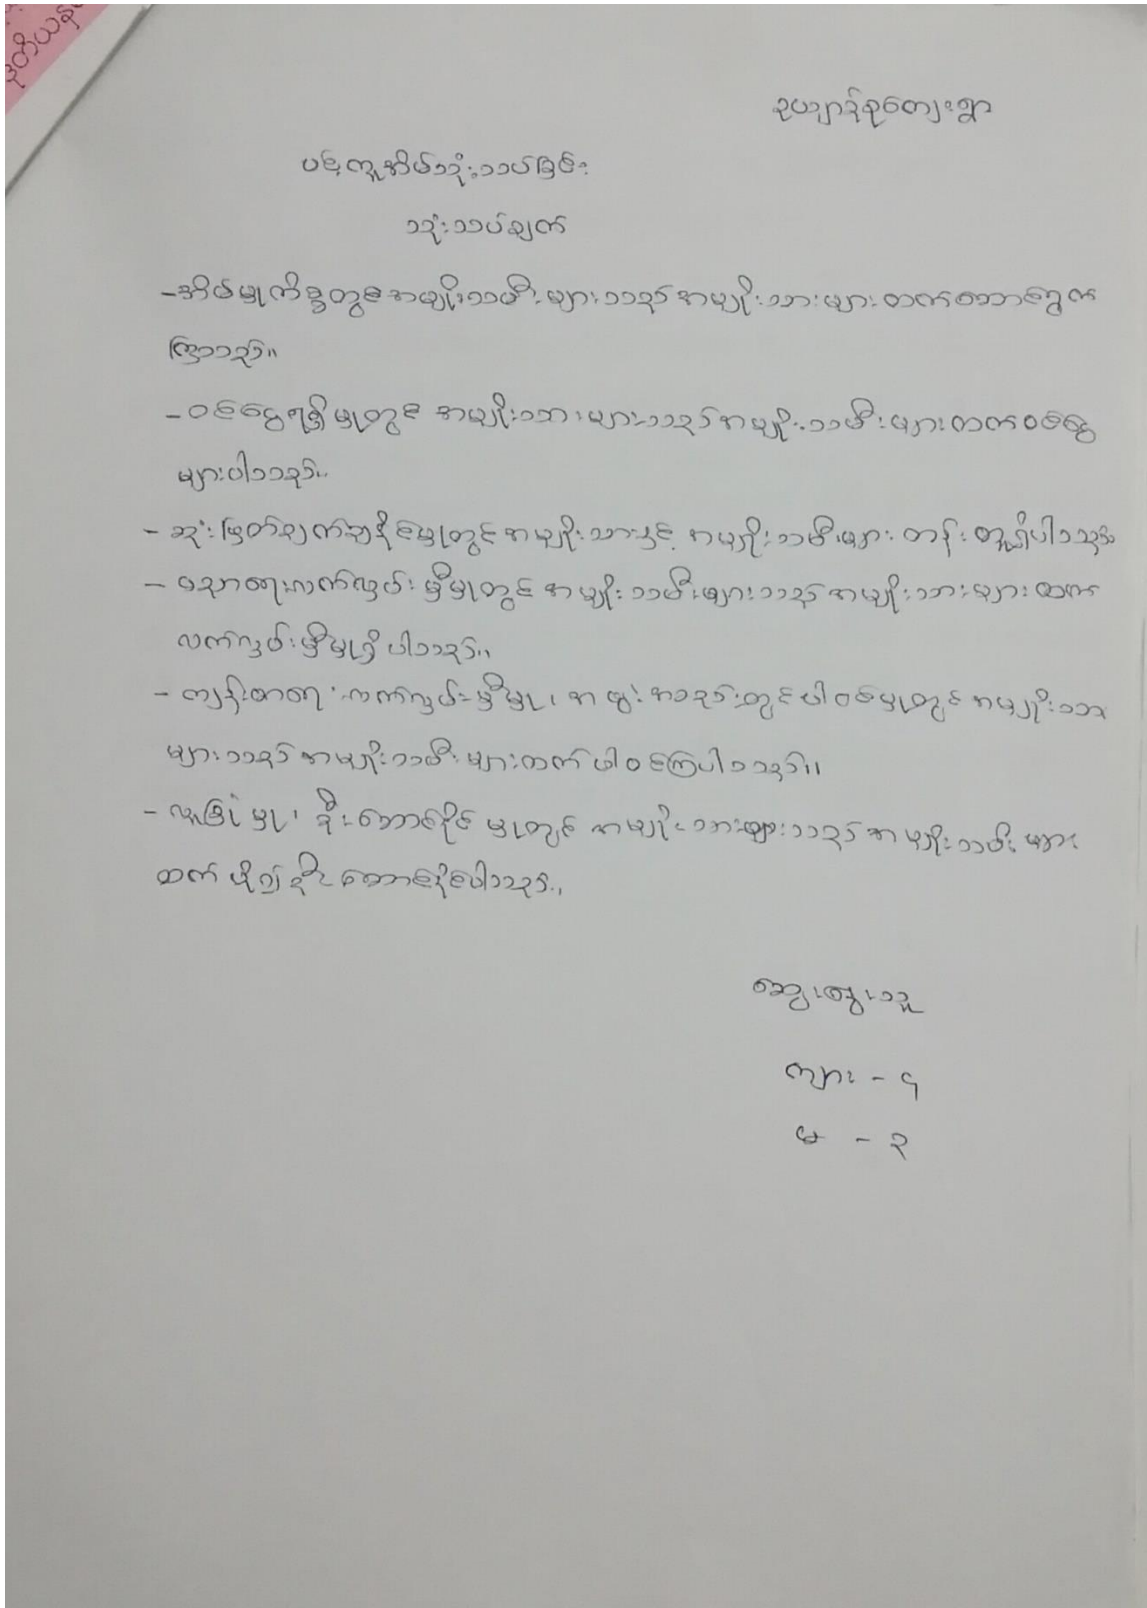 ဒုတိယနှ
ဥယျာဉ်စုကျေးရွာ
ပန်းကူအိမ်သုံးသပ်ခြင်း
သုံးသပ်ချက်
-အိမ်မှုကိစ္စတွင် အမျိုးသမီးများသည် အမျိုးသားများထက်ဆောင်ရွက်
ကြသည်။
- ဝင်ငွေရရှိမှုတွင် အမျိုးသားများသည် အမျိုးသမီးများထက်ဝင်ငွေ
များပါသည်။
- ဆုံးဖြတ်ချက်ချနိုင်မှုတွင် အမျိုးသားနှင့် အမျိုးသမီးများ တန်းတူရှိပါသည်။
- ပညာရေးလက်လှမ်းမှီမှုတွင် အမျိုးသမီးများသည် အမျိုးသားများထက်
လက်လှမ်းမှီမှုရှိပါသည်။
- ကျန်းမာရေးလက်လှမ်းမှီမှု၊ အဖွဲ့အစည်းတွင်ပါဝင်မှုတွင် အမျိုးသား
များသည် အမျိုးသမီးများထက် ပါဝင်ကြပါသည်။
- လူခြုံမှု၊ ဦးဆောင်နိုင်မှုတွင် အမျိုးသားများသည် အမျိုးသမီးများ
ထက် ပို၍ ဦးဆောင်နိုင်ပါသည်။
ဆွေးနွေးသူ
ကျား - ၄
မ - ၃